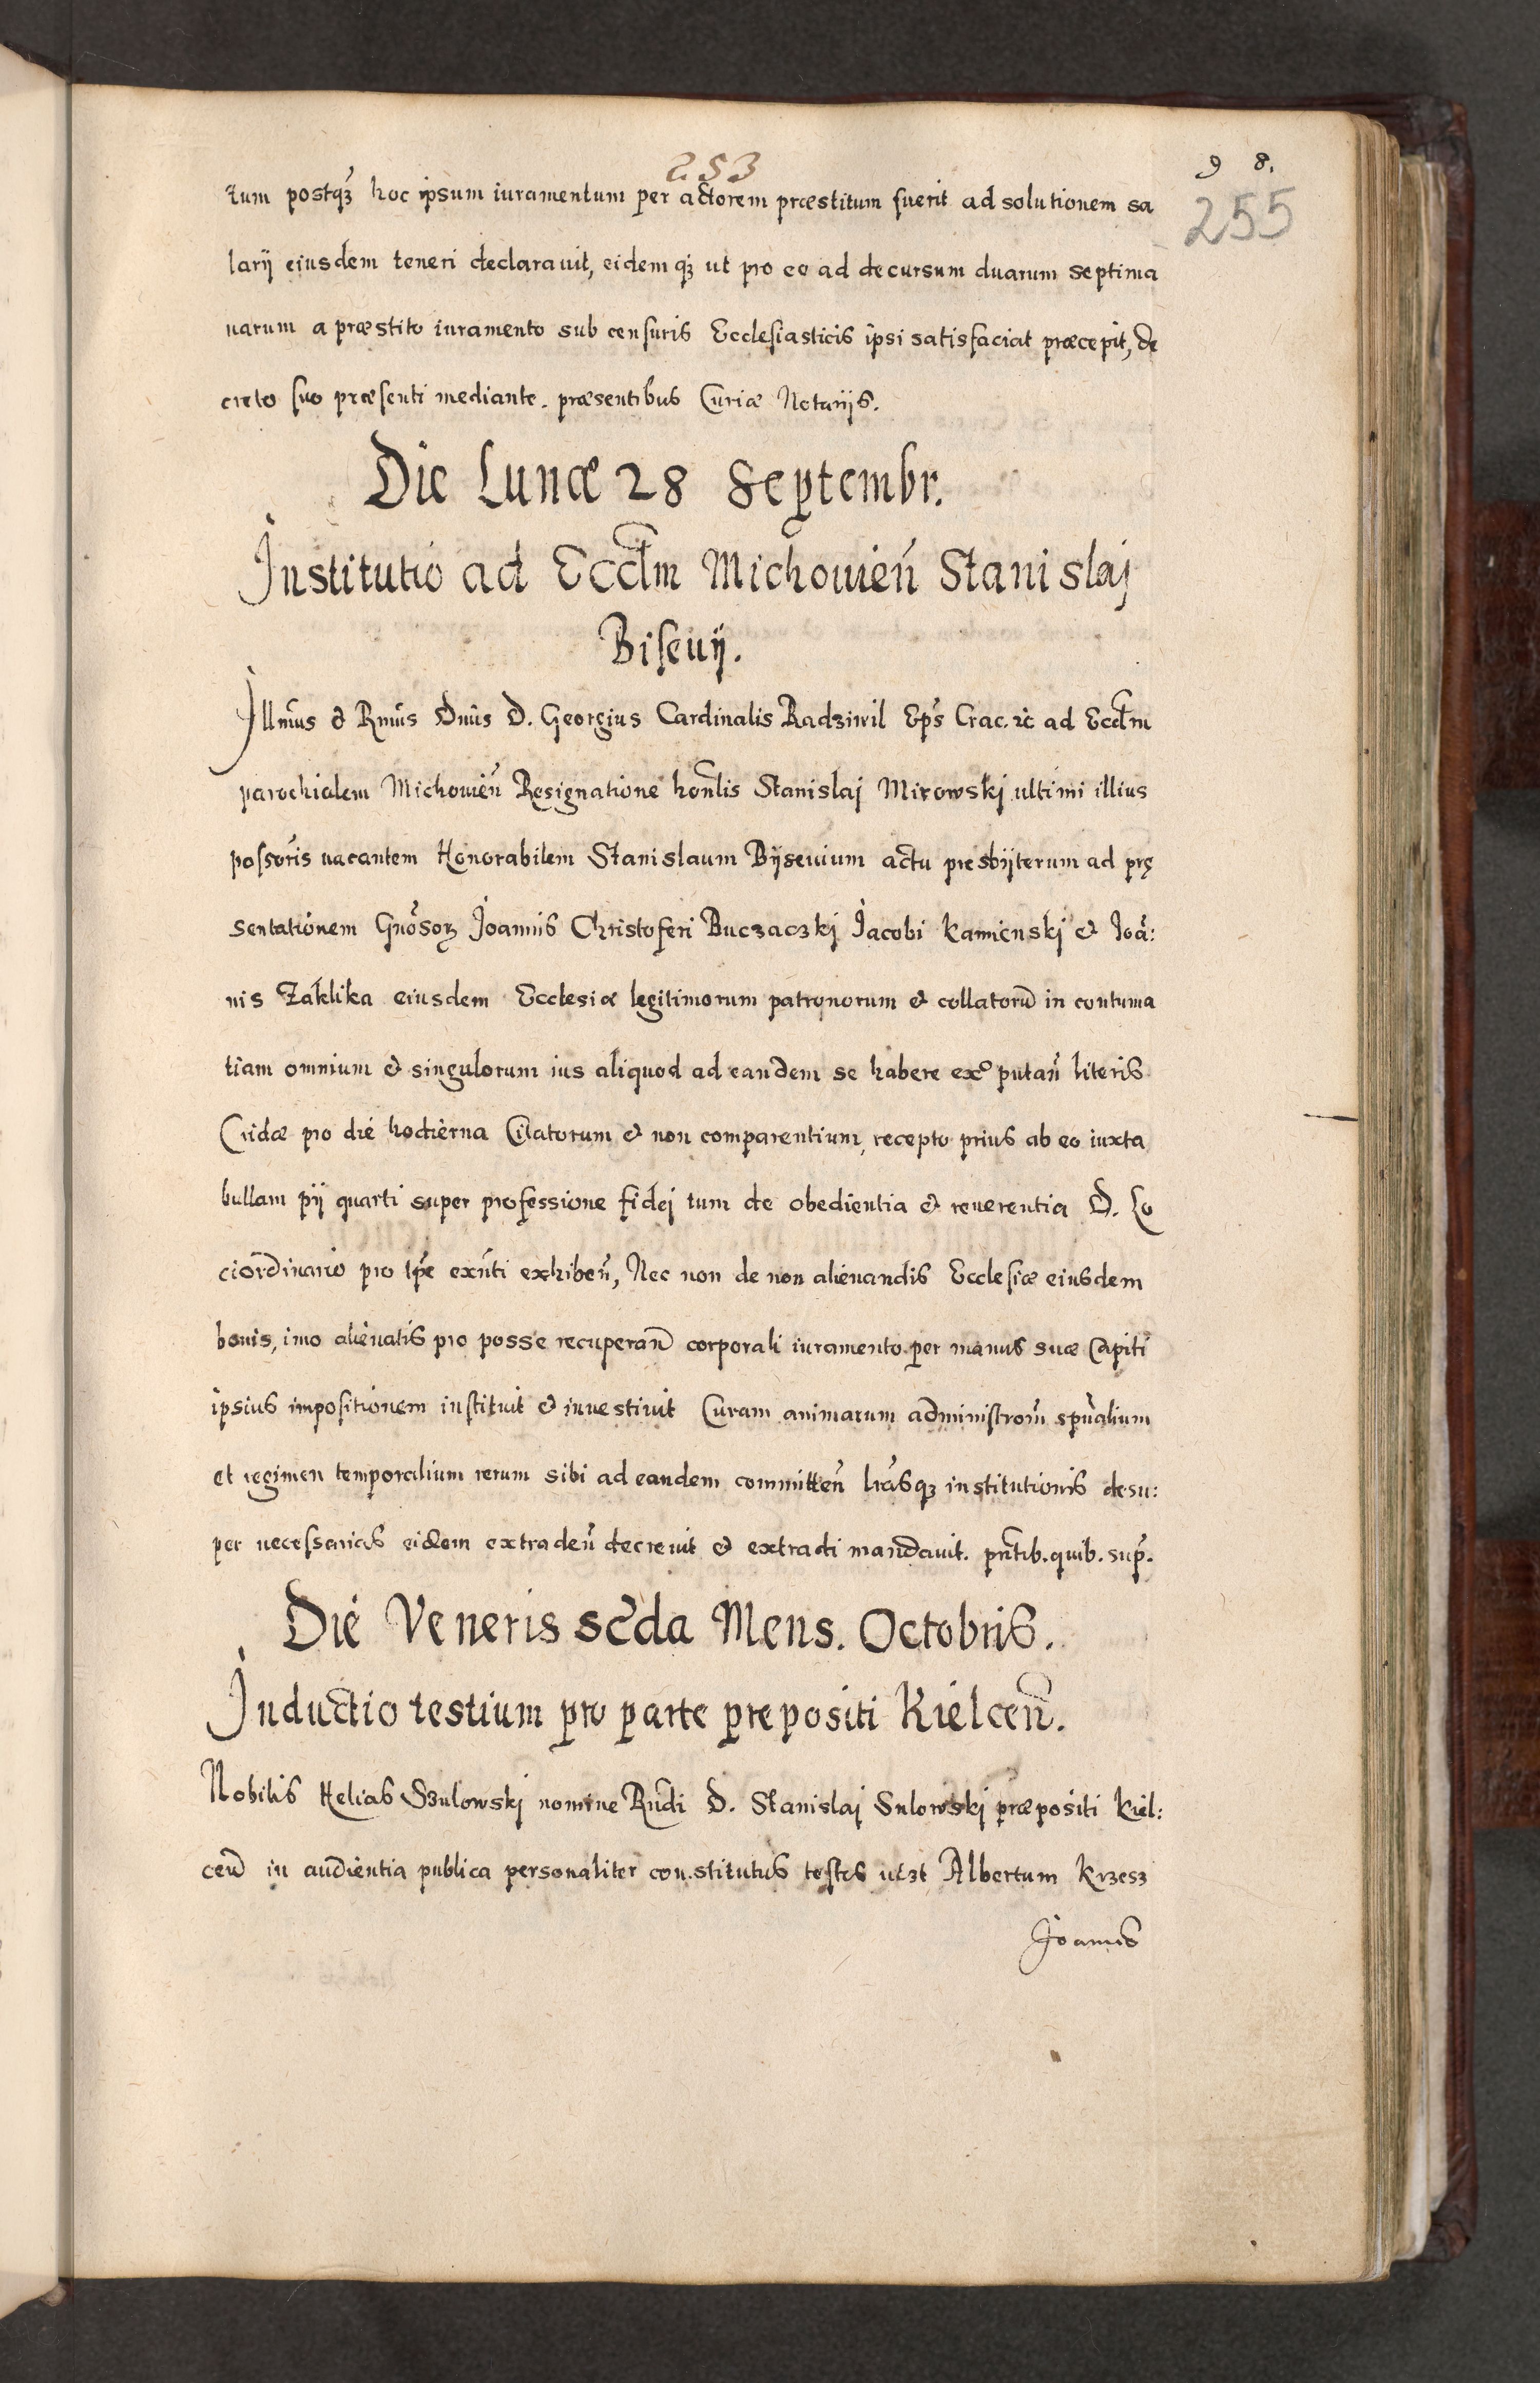 253
9 8.
255
tum postqȝ hoc ipsum iuramentum per actorem præstitum fuerit ad solutionem sa
larij eiusdem teneri declarauit, eidemqȝ ut pro eo ad decursum duarum septima
narum a præstito iuramento sub censuris Ecclesiasticis ipsi satisfaciat præcepit, de
creto suo præsenti mediante. præsentibus Curiæ Notarijs.
Die Lunæ 28 Septembr.
Institutio ad Eccłm Michouień Stanislaj
Biseuij.
Illm̃us & Rm̃us Dñus D. Georgius Cardinalis Radziwil Ep̃s Crac. ꝛc ad Eccłm
parochialem Michouień Resignatione hon̄lis Stanislaj Mirowskj ultimi illius
possor̃is uacantem Honorabilem Stanislaum Bÿseuium actu presbÿterum ad prę
sentationem Gñosoꝝ Joannis Christoferi Buczaczkj Jacobi Kamienskj & Joã:
nis Zaklika eiusdem Ecclesiæ legitimorum patronorum & collatorũ in contuma
tiam omnium & singulorum ius aliquod ad eandem se habere exº putañ literis
Cridæ pro die hodierna Citatorum & non comparentium, recepto prius ab eo iuxta
bullam pij quarti super professione fidej tum de obedientia & reuerentia D. Lo
ciordinario pro tp̃e exñti exhibeñ, Nec non de non alienandis Ecclesiæ eiusdem
bonis, imo alienatis pro posse recuperañ corporali iuramento per manus suæ Capiti
ipsius impositionem instituit & inuestiuit Curam animarum administroñ spũalium
et regimen temporalium rerum sibi ad eandem committeñ lr̃asqȝ institutionis desu:
per necessarias eidem extradeñ decreuit & extradi mandauit. pñtib. quib. sup̃.
Die Veneris sc̃da Mens. Octobris.
Inductio testium pro parte prepositi Kielceñ.
Nobilis Helias Szulowskj nomine Rñdi D. Stanislaj Sulowskj præpositi Kiel:
ceñ in audientia publica personaliter constitutus testes uꝫt Albertum Krzesz
Joannis